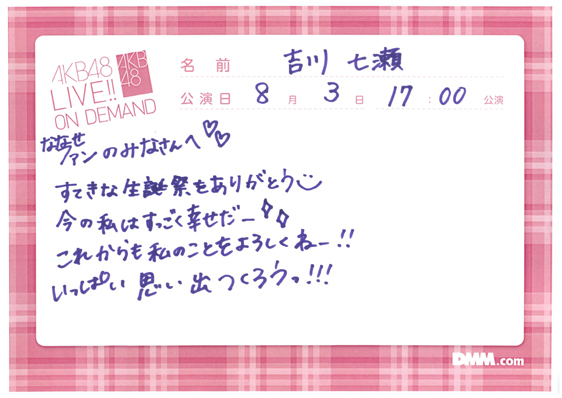 AKB48
LIVE!!
ON DEMAND
AKB
48
名前 吉川 七瀬
公演日 8月 3日 17:00 公演
ななせ
ファンのみなさんへ♡♡
すてきな生誕祭をありがとう
今の私はすっごく幸せだー
これからも私のことをよろしくねー!!
いっぱい思い出つくろうっ!!!
DMM.com